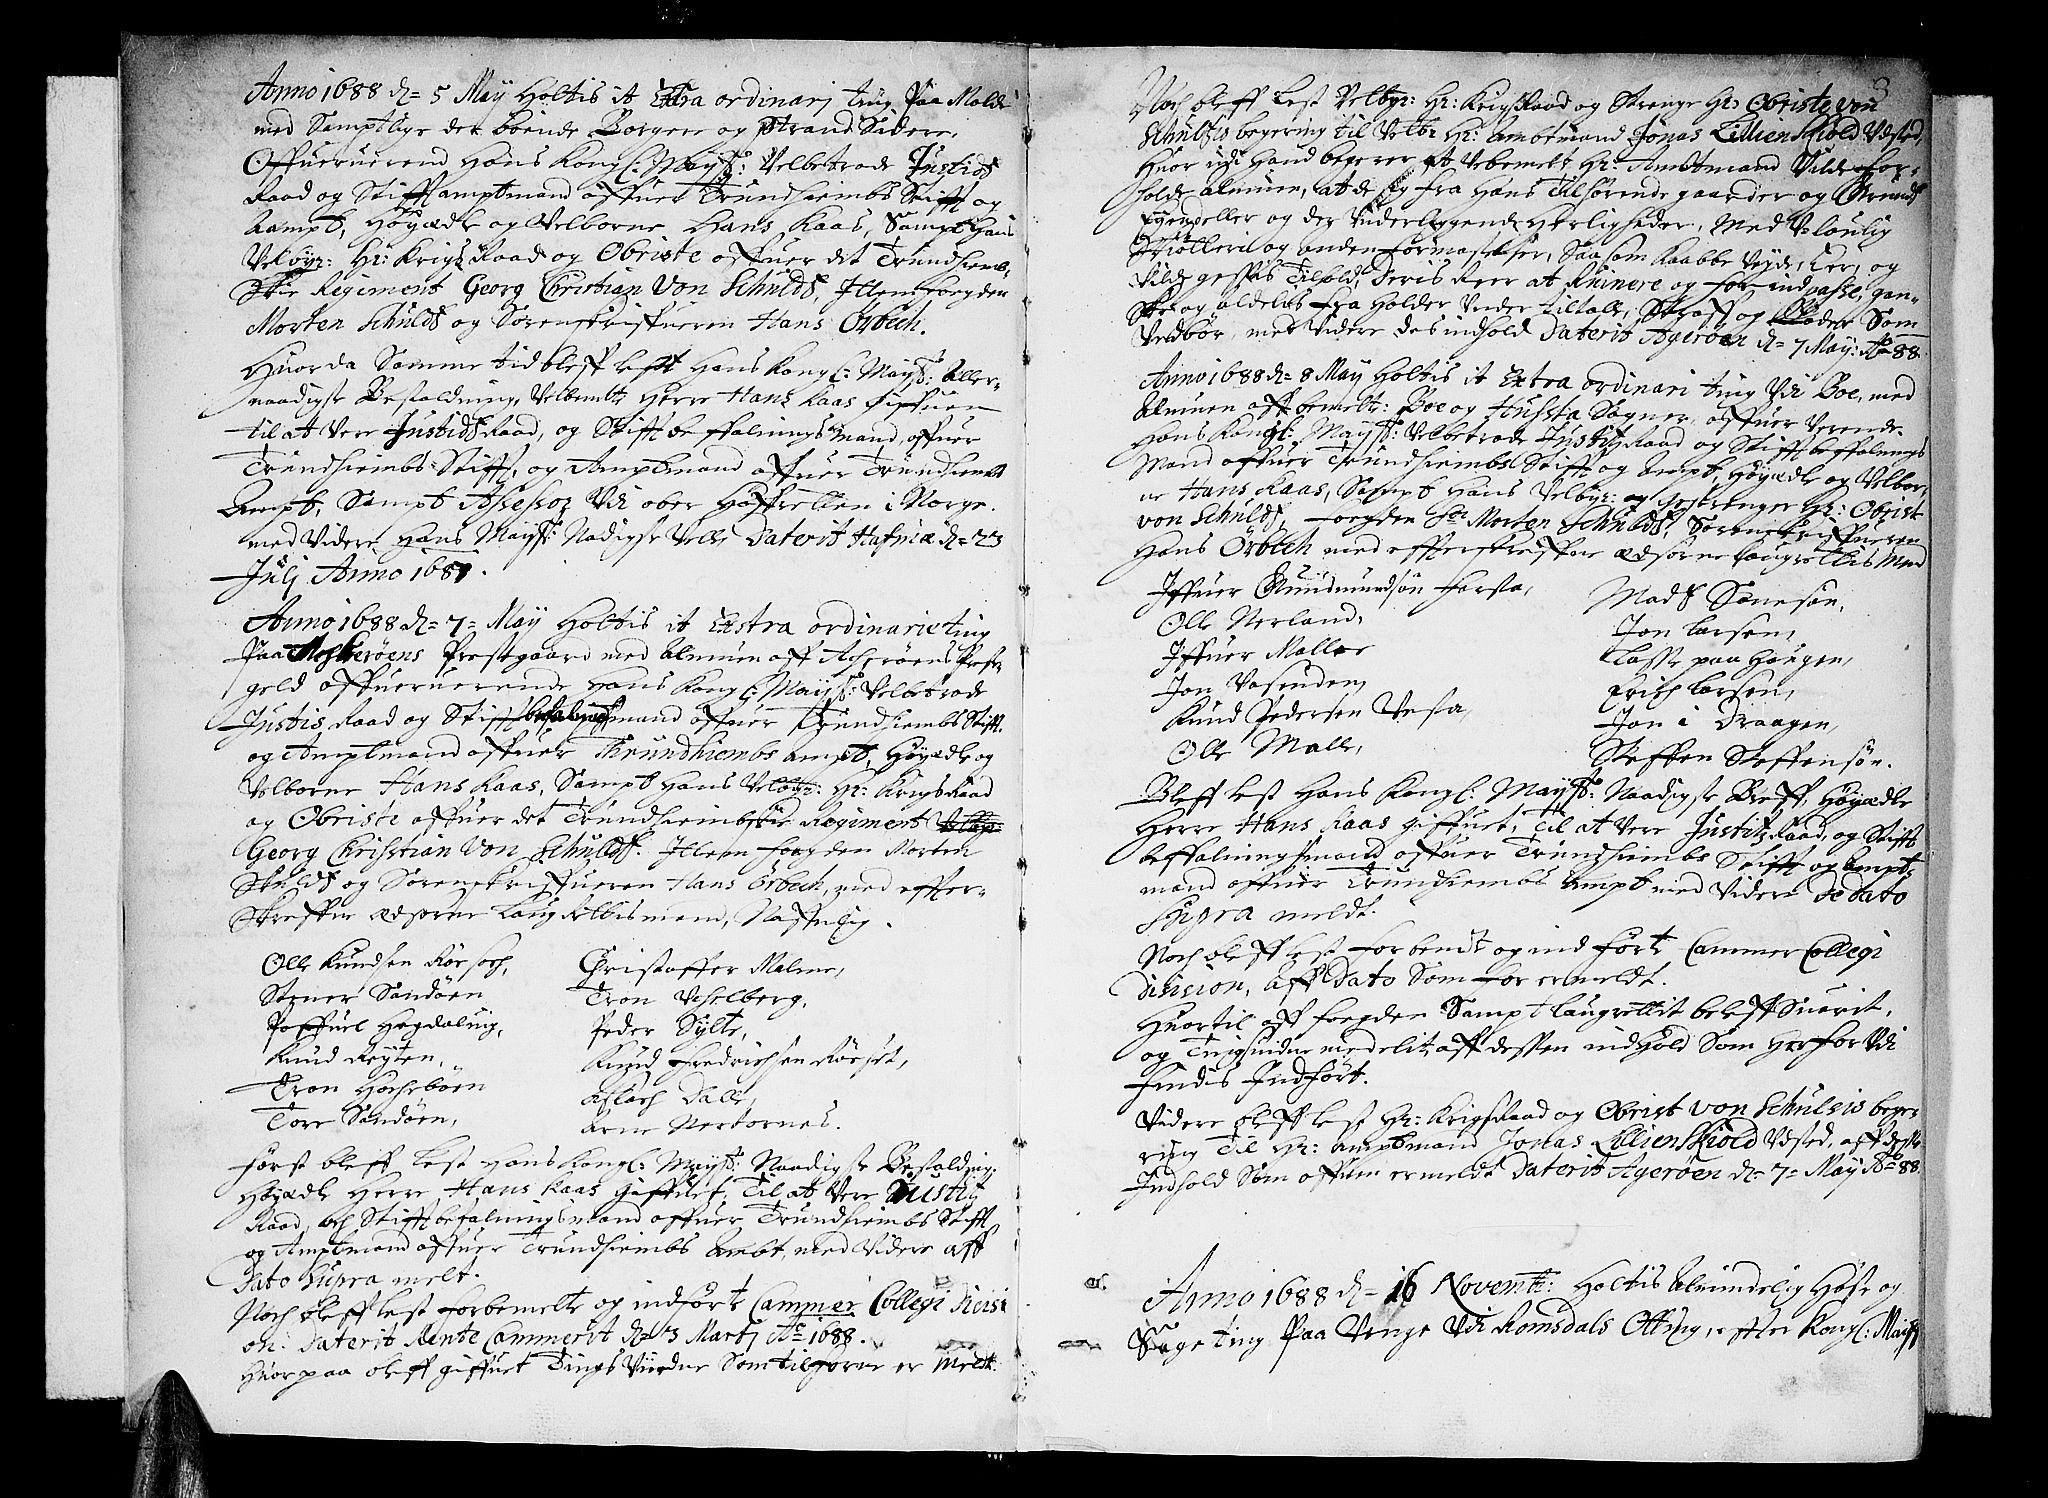 Anno 1688 d= 5 May Holtis it Extra ordinarj ting Paa Molde
med Samptlige der boende Borgere og Strand Sidere.
Offueruerend Hans Kongl: Mayst: Velbetrode Justids
Raad og Stifftamptmand offuer Trundhiembs Stifft og
Aampt, Høyædle og Velborne Hans Kaas, Sampt Hans
Velbyr: Hr: Krigs Raad og Obriste offuer det Trundhiemb-
Skie Regiment Georg Christian Von Schults, Jttem foegden
Morten Schults og Sorenskriffueren Hans Örbech.
Huor da Samme tid bleff lest Hans Kongl: Mayst: Aller-
naadigste Bestaldning Velbemte Herre Hans Kaas giffuen
til at Vere Justids Raad, og Stifft befalnings mand, offuer
Trundhiembs Stifft, og Amptmand offuer Trundhiembs
Ampt, Sampt Assessor Vdi ober Hoffretten i Norge.
med Videre Hans Mayst: Nadigste Velle Daterit Hafniæ d= 23
Julj Anno 1687.
Anno 1688 d= 7= May Holtis it Extra ordinarie ting
Paa Acherøens Prestgaard med Almuen aff Acherøens Preste-
geld offueruerende Hans Kongl: Mayst: Velbetrode
Justis Raad og Stifft befalnings mand offuer Trundhiembs Stifft
og Amptmand offuer Thrundhiembs ampt, Høyædle og
Velborne Hans Kaas, Sampt Hans Velbyr: Hr: Krigs Raad
og Obriste offuer det Trundhiembskie Regiment
Georg Christian Von Schults. Jttem foegden Morten
Skults og Sorenskriffueren Hans Örbech, med effter-
Skreffne ædsorne Laugrettis mend, Naffnlig.
Olle Knudsen Rörsech,
Stener Sandöen
Poffuel Hegdaling,
Knud Röyten,
Tron Hochebøen
Tore Sandöen,
Christoffer Malme,
Tron Uchelberg,
Peder Sylte,
Knud Fredrichsen Rörset,
Aslach Dalle,
Arne Nertornes.
först bleff lest Hans Kongl: Mayst: Naadigste Bestalding
Høyædle Herre Hans Kaas giffuet, Til at Vere Justis
Raad, och Stifftbefalnings mand offuer Trundhiembs Stifft
og Amptmand offuer Trundhiembs Ambt, med Videre aff
Dato Supra melt.
Noch bleff lest forbemelte og indförte Cammer Collegi Disisi
on: Daterit Rente Cammerit d= 13 Martj Ao 1688.
Huorpaa bleff giffuet Tings Vidne Som tilforne er meldt.
3
Noch bleff lest Velbyr: Hr: Krigs Raad og Strenge Hr: Obriste Von
Schultsis begering til Velb: Hr: Ambtmand Jonas Lillienskiold Udsted,
Huor udi Hand begerer at Velbemelt Hr: Ambtmand Vilde for-
holde Almuen, at de Sig fra Hans Tilhörende gaarder og Grunds
Egendeller og der Underliggende Herligheder, Med Uloulig
og anden formastelser, Saasom Kaabbe Veyde, ler, og
gan-
Skeog aldelis fra Holder Under tiltalle, Straff og Bøder Som
Vedbör, med Videre des indhold Daterit Agerøen d= 7 May: Ao 88.
Anno 1688 d= 8 May Holtis it Extra ordinari ting Vdi Boe, med
Almuen aff bemelte: Boe og Hussta Sogner, offuer Verende
Hans Kongl: Mayst: Velbetrode Justits Raad og Stifft befalnings
Mand offuer Trundhiembs Stifft og Ampt, Høyædle og Velbor-
ne Hans Kaas, Sampt Hans Velbyr: og gestrenge Hr: Obrist
von Schults, foegden Sr Morten Schults, Sorenskriffueren
Hans Örbech med effterskreffne ædsorne Laugrettis Mend
Jffuer Gundmundsön Harsta,
Olle Nerland,
Jffuer Malloe
Jon Vasenden,
Knud Pedersen Vesta,
Olle Malle,
Mads Sønesøn,
Jon Larsen,
Lasse paa Haugen,
Erich Larsen,
Jon i Draagen,
Steffen Steffensön.
Bleff lest Hans Kongl: Mayst: Naadigste Breff, Høyædle
Herre Hans Kaas giffuet, Til at Vere Justits Raad, og Stifft
beffalningsmand offuer Trundhiembs Stifft og Ampt-
mand offuer Trundhiembs Ampt med Videre de Dato
Supra meldt.
Noch bleff lest forbendte og ind förte Cammer Collegi
Disision, Aff Dato Som for er meldt.
Huortil aff foegden Sampt Laugrettit bleff Suarit,
og Tingsuidne medelit aff dessen indhold Som Herfor Vdi
findis Jndfört.
Videre bleff lest Hr: Krigs Raad og Obrist Von Schulsis bege-
ring Til Hr: Amptmand Jonas Lillienskiold Udsted, aff dessen
Jndhold Som offuen er meldt Daterit Agerøen d= 7= May Ao 88.
Anno 1688 d= 16 Novemb: Holtis Almindelig Høst og
Sage ting Paa Venge Vdi Romsdals Otting, effter Kongl: Mayst